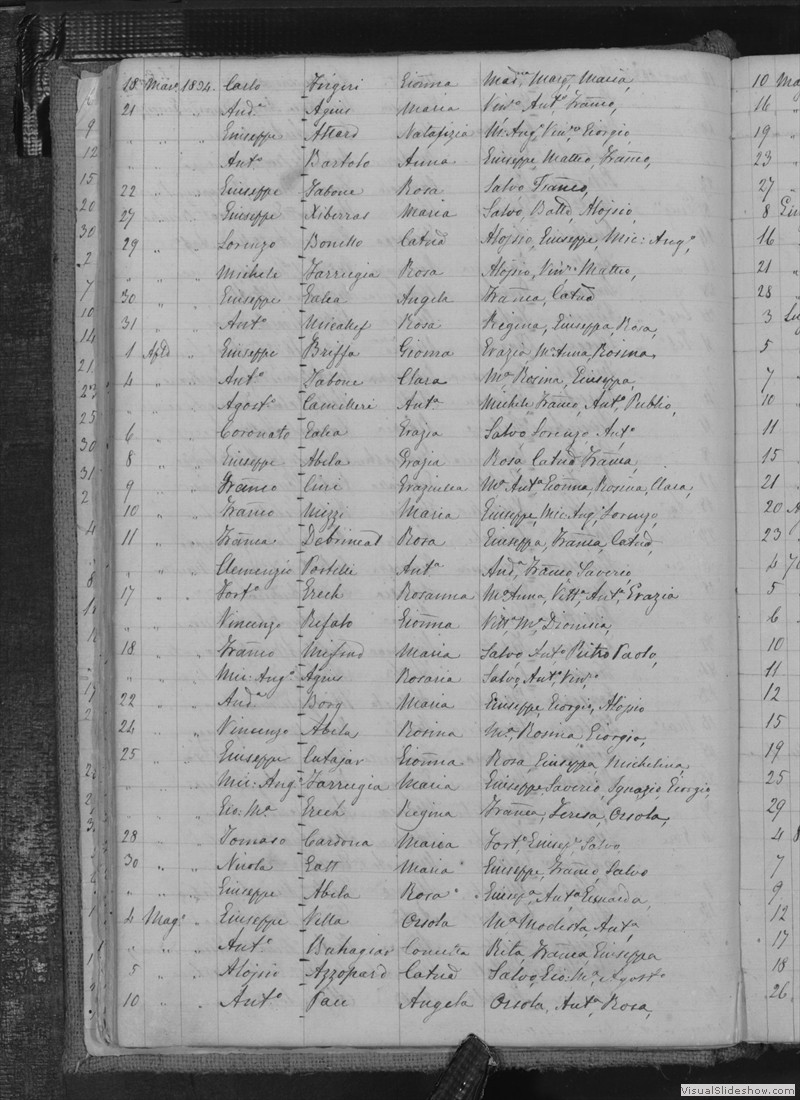 18 Mar. 1894. Carlo Zingeri Gioñna Madna Margta Maria,
21 " " Anda Agius Maria Vinzo Anto Franco,
" " " Giuseppe Attard Natalizia Mc Ango Vinzo Giorgio
" " " Anto Bartolo Anna Giuseppe Matteo, Franco,
22 " " Giuseppe Zabone Rosa Salvo Franco,
27 " " Giuseppe Xiberras Maria Salvo, Batta Alojsio,
29 " " Lorenzo Bonello Catna Alojsio, Giuseppe, Mic: Ango,
" " " Michele Farrugia Rosa Alojsio, Vinzo Matteo,
30 " " Giuseppe Galea Angela Franca, Catna
31 " " Anto Micallef Rosa Regina, Giuseppa, Rosa,
1 Aple " Giuseppe Briffa Gioñna Grazia Ma Anna Rosina
4 " " Anto Zabone Clara Ma Rosina, Giuseppa,
" " " Agosto Camilleri Anta Michele Franco, Anto Publio,
6 " " Coronato Galea Grazia Salvo Lorenzo, Anto
8 " " Giuseppe Abela Grazia Rosa Catna Franca,
9 " " Franco Cini Graziulla Ma Anta Gioñna, Rosina, Clara,
10 " " Franco Mizzi Maria Giuseppe, Mic: Ango, Lorenzo,
11 " " Franca Debrincat Rosa Giuseppa, Franca, Catna
" " " Clemenzio Portelli Anta Anda Franco Saverio
17 " " Forto Grech Rosanna Ma Anna, Vitta, Anta, Grazia
" " " Vincenzo Refalo Gioñna Vitta Ma Dionisia,
18 " " Franco Mifsud Maria Salvo Anto Pietro Paolo,
" " " Mic: Ango Agius Rosaria Salvo, Anto, Vinzo
22 " " Anda Borg Maria Giuseppe, Giorgio, Alojsio
24 " " Vincenzo Abela Rosina Ma Rosina Giorgio,
25 " " Giuseppe Cutajar Gioñna Rosa Giuseppa Michelina,
" " " Mic: Ango Farrugia Maria Giuseppe Saverio, Ignazio Giorgio,
" " " Gio: Ma Grech Regina Franca, Teresa, Orsola,
28 " " Tomaso Cardona Maria Forto Giusepe Salvo
30 " " Nicola Gatt Maria Giuseppe, Franco, Salvo
" " " Giuseppe Abela Rosa Giusepa, Anta
4 Mago " Giuseppe Vella Orsola Ma Modesta, Anta,
" " " Anto Buhagiar Rita, Franca Giuseppa
5 " " Alojsio Azzopard Catna Salvo, Gio: Ma, Agosto
10 " " Anto Pace Angela Orsola, Anta Rosa,
9
12
15
20
30
2
7
10
14
21
23
25
30
31
2
4
8
10 Ma
16 "
19 "
23 "
27 "
8 Giu
16 "
21 "
28 "
3
5
7
10
11
15
21
20
23
4
5
6
10
11
12
15
19
25
29
4
7
9
12
17
18
26
VisualSlideshow.com